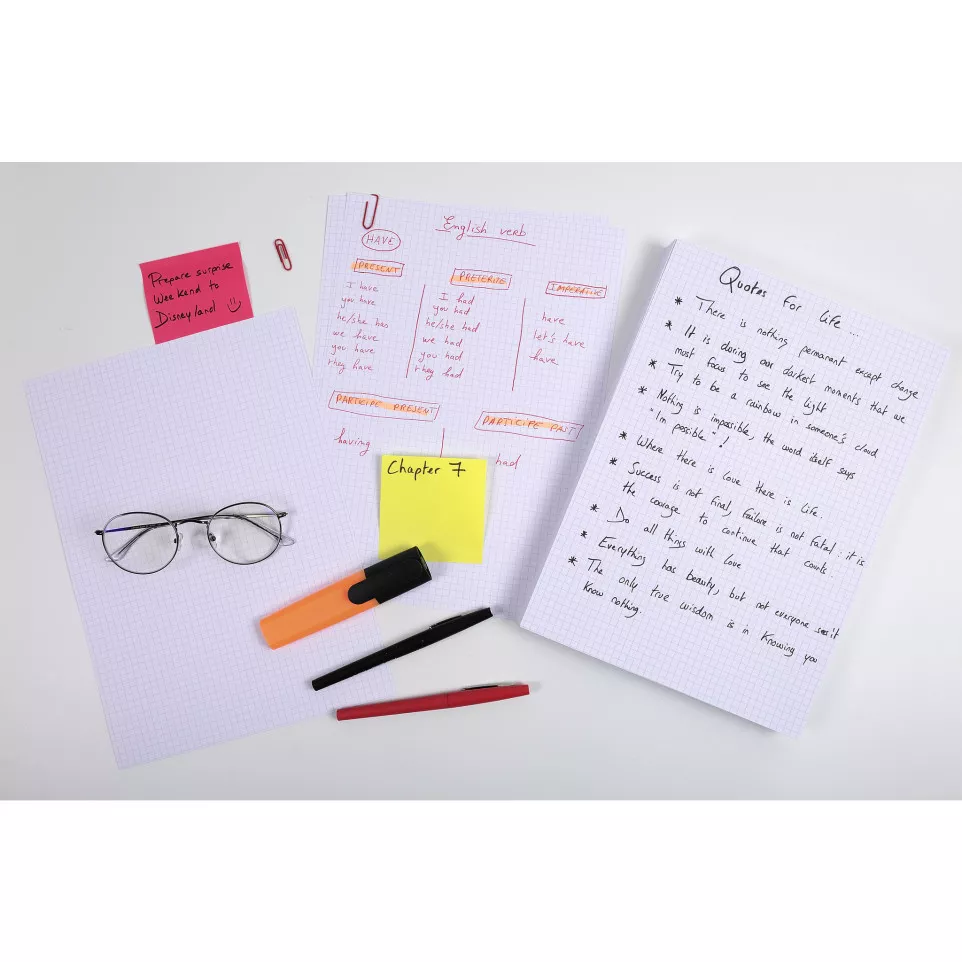 Prepare surprise
Weekend to
Disneyland
English verb
HAVE
PRESENT
I have
you have
he/she has
we have
you have
they have
PRETERITE
I had
you had
he/she had
we had
you had
they had
IMPERATIVE
have
Let's have
have
PARTICIPE PRESENT
having
PARTICIPE PAST
had
Chapter 7
Quotes For life ...
* There is nothing permanent except change
* It is during our darkest moments that we
must focus to see the light
* Try to be a rainbow in someone's cloud
* Nothing is impossible, the word itself says
"Im possible" !
* Where there is love there is life.
* Success is not final, failure is not fatal : it is
the courage to continue that counts.
* Do all things with love
* Everything has beauty, but not everyone sees it
* The only true wisdom is in knowing you
know nothing.